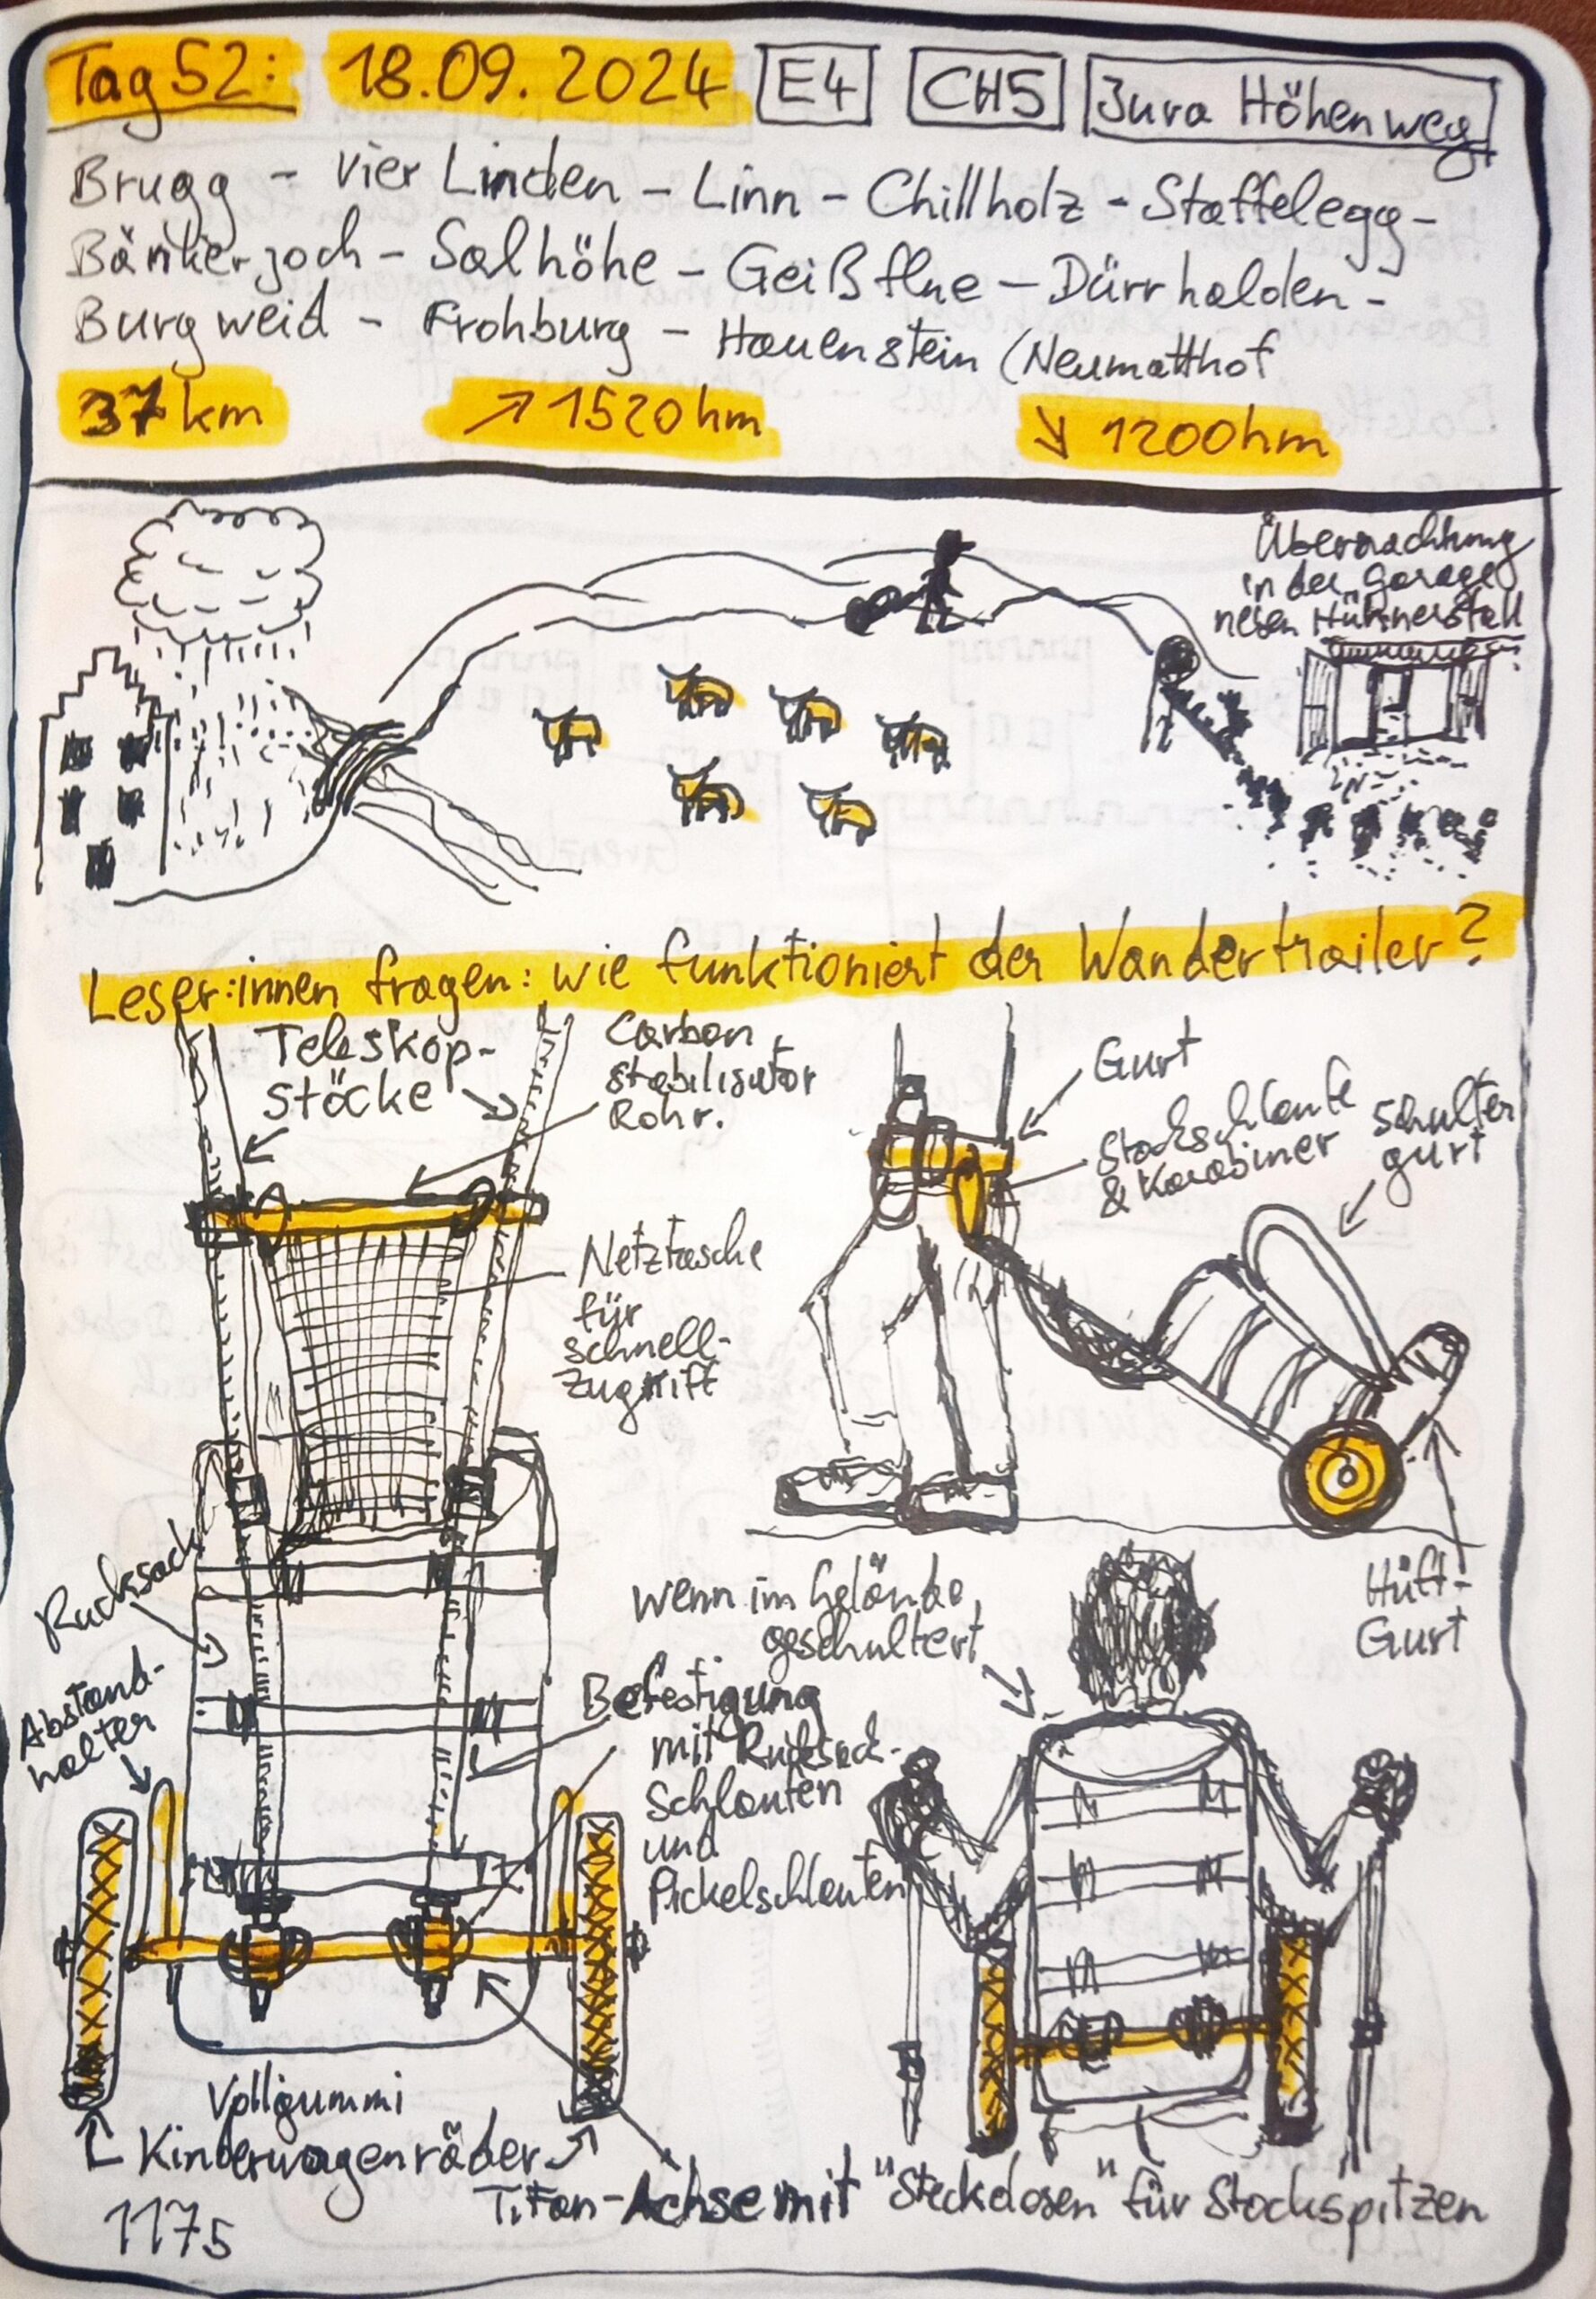 Tag 52: 18.09.2024 E4 CH5 Jura Höhenweg
Brugg - Vier Linden - Linn - Chillholz - Staffelegg -
Bänkerjoch - Salhöhe - Geißflue - Dürrhalden -
Burgweid - Frohburg - Hauenstein (Neumatthof
37 km ↗ 1520hm ↘ 1200hm
Übernachtung
in der "Garage"
neben Hühnerstall
Leser:innen fragen: wie funktioniert der Wandertrailer?
Teleskop-
stöcke
Carbon
stabilisator
Rohr.
Gurt
Stockschlaufe
& Karabiner
Schulter
gurt
Netztasche
für
schnell-
Zugriff
Hüft-
Gurt
Rucksack
Abstand-
halter
wenn im Gelände,
geschultert
Befestigung
mit Rucksack-
Schlaufen
und
Pickelschlaufen
Vollgummi
Kinderwagenräder
Titan-Achse mit "Steckdosen" für Stockspitzen
1175